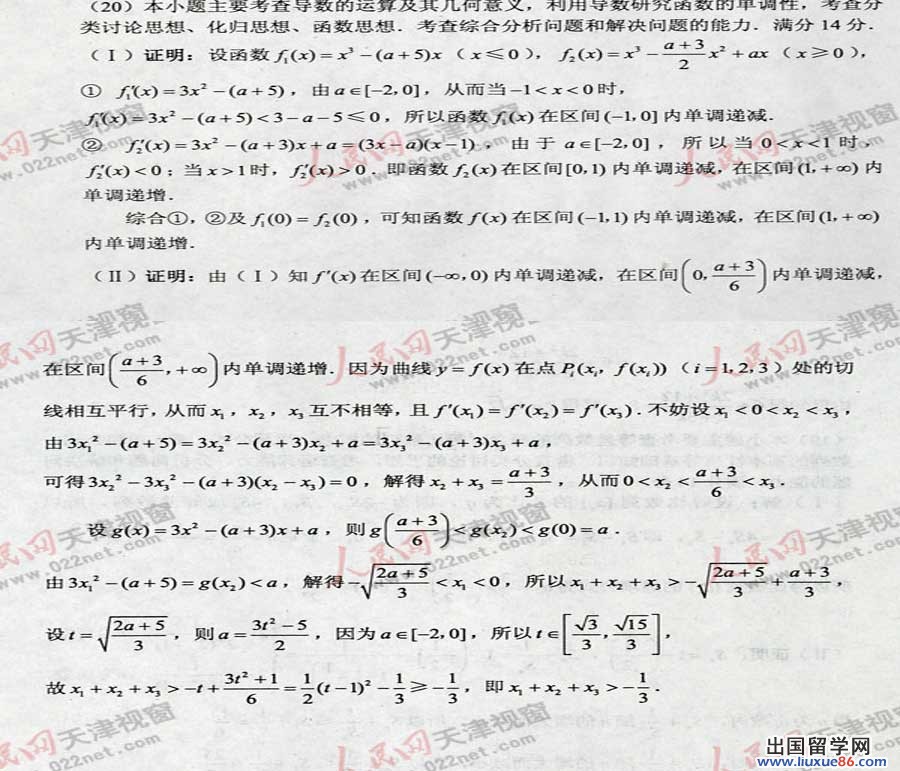 (20) 本小题主要考查导数的运算及其几何意义，利用导数研究函数的单调性，考查分
类讨论思想、化归思想、函数思想．考查综合分析问题和解决问题的能力．满分 14 分．
(Ⅰ) 证明：设函数 f₁(x)=x³-(a+5)x（x≤0），f₂(x)=x³-\frac{a+3}{2}x²+ax（x≥0），
① f₁′(x)=3x²-(a+5)，由 a∈[-2,0]，从而当 -1<x<0 时，
f₁′(x)=3x²-(a+5)<3-a-5≤0，所以函数 f₁(x) 在区间 (-1,0] 内单调递减．
② f₂′(x)=3x²-(a+3)x+a=(3x-a)(x-1)，由于 a∈[-2,0]，所以当 0<x<1 时，
f₂′(x)<0；当 x>1 时，f₂′(x)>0．即函数 f₂(x) 在区间 [0,1) 内单调递减，在区间 (1,+∞) 内
单调递增．
综合①，②及 f₁(0)=f₂(0)，可知函数 f(x) 在区间 (-1,1) 内单调递减，在区间 (1,+∞)
内单调递增．
(Ⅱ) 证明：由（Ⅰ）知 f′(x) 在区间 (-∞,0) 内单调递减，在区间 (0,\frac{a+3}{6}) 内单调递减，
在区间 (\frac{a+3}{6},+∞) 内单调递增．因为曲线 y=f(x) 在点 Pᵢ(xᵢ, f(xᵢ))（i=1,2,3）处的切
线相互平行，从而 x₁，x₂，x₃ 互不相等，且 f′(x₁)=f′(x₂)=f′(x₃)．不妨设 x₁<0<x₂<x₃，
由 3x₁²-(a+5)=3x₂²-(a+3)x₂+a=3x₃²-(a+3)x₃+a，
可得 3x₂²-3x₃²-(a+3)(x₂-x₃)=0，解得 x₂+x₃=\frac{a+3}{3}，从而 0<x₂<\frac{a+3}{6}<x₃．
设 g(x)=3x²-(a+3)x+a，则 g(\frac{a+3}{6})<g(x₂)<g(0)=a．
由 3x₁²-(a+5)=g(x₂)<a，解得 -\sqrt{\frac{2a+5}{3}}<x₁<0，所以 x₁+x₂+x₃>-\sqrt{\frac{2a+5}{3}}+\frac{a+3}{3}，
设 t=\sqrt{\frac{2a+5}{3}}，则 a=\frac{3t²-5}{2}，因为 a∈[-2,0]，所以 t∈[\frac{\sqrt{3}}{3},\frac{\sqrt{15}}{3}]，
故 x₁+x₂+x₃>-t+\frac{3t²+1}{6}=\frac{1}{2}(t-1)²-\frac{1}{3}≥-\frac{1}{3}，即 x₁+x₂+x₃>-\frac{1}{3}．
人民网 天津视窗
www.022net.com
出国留学网
www.liuxue86.com